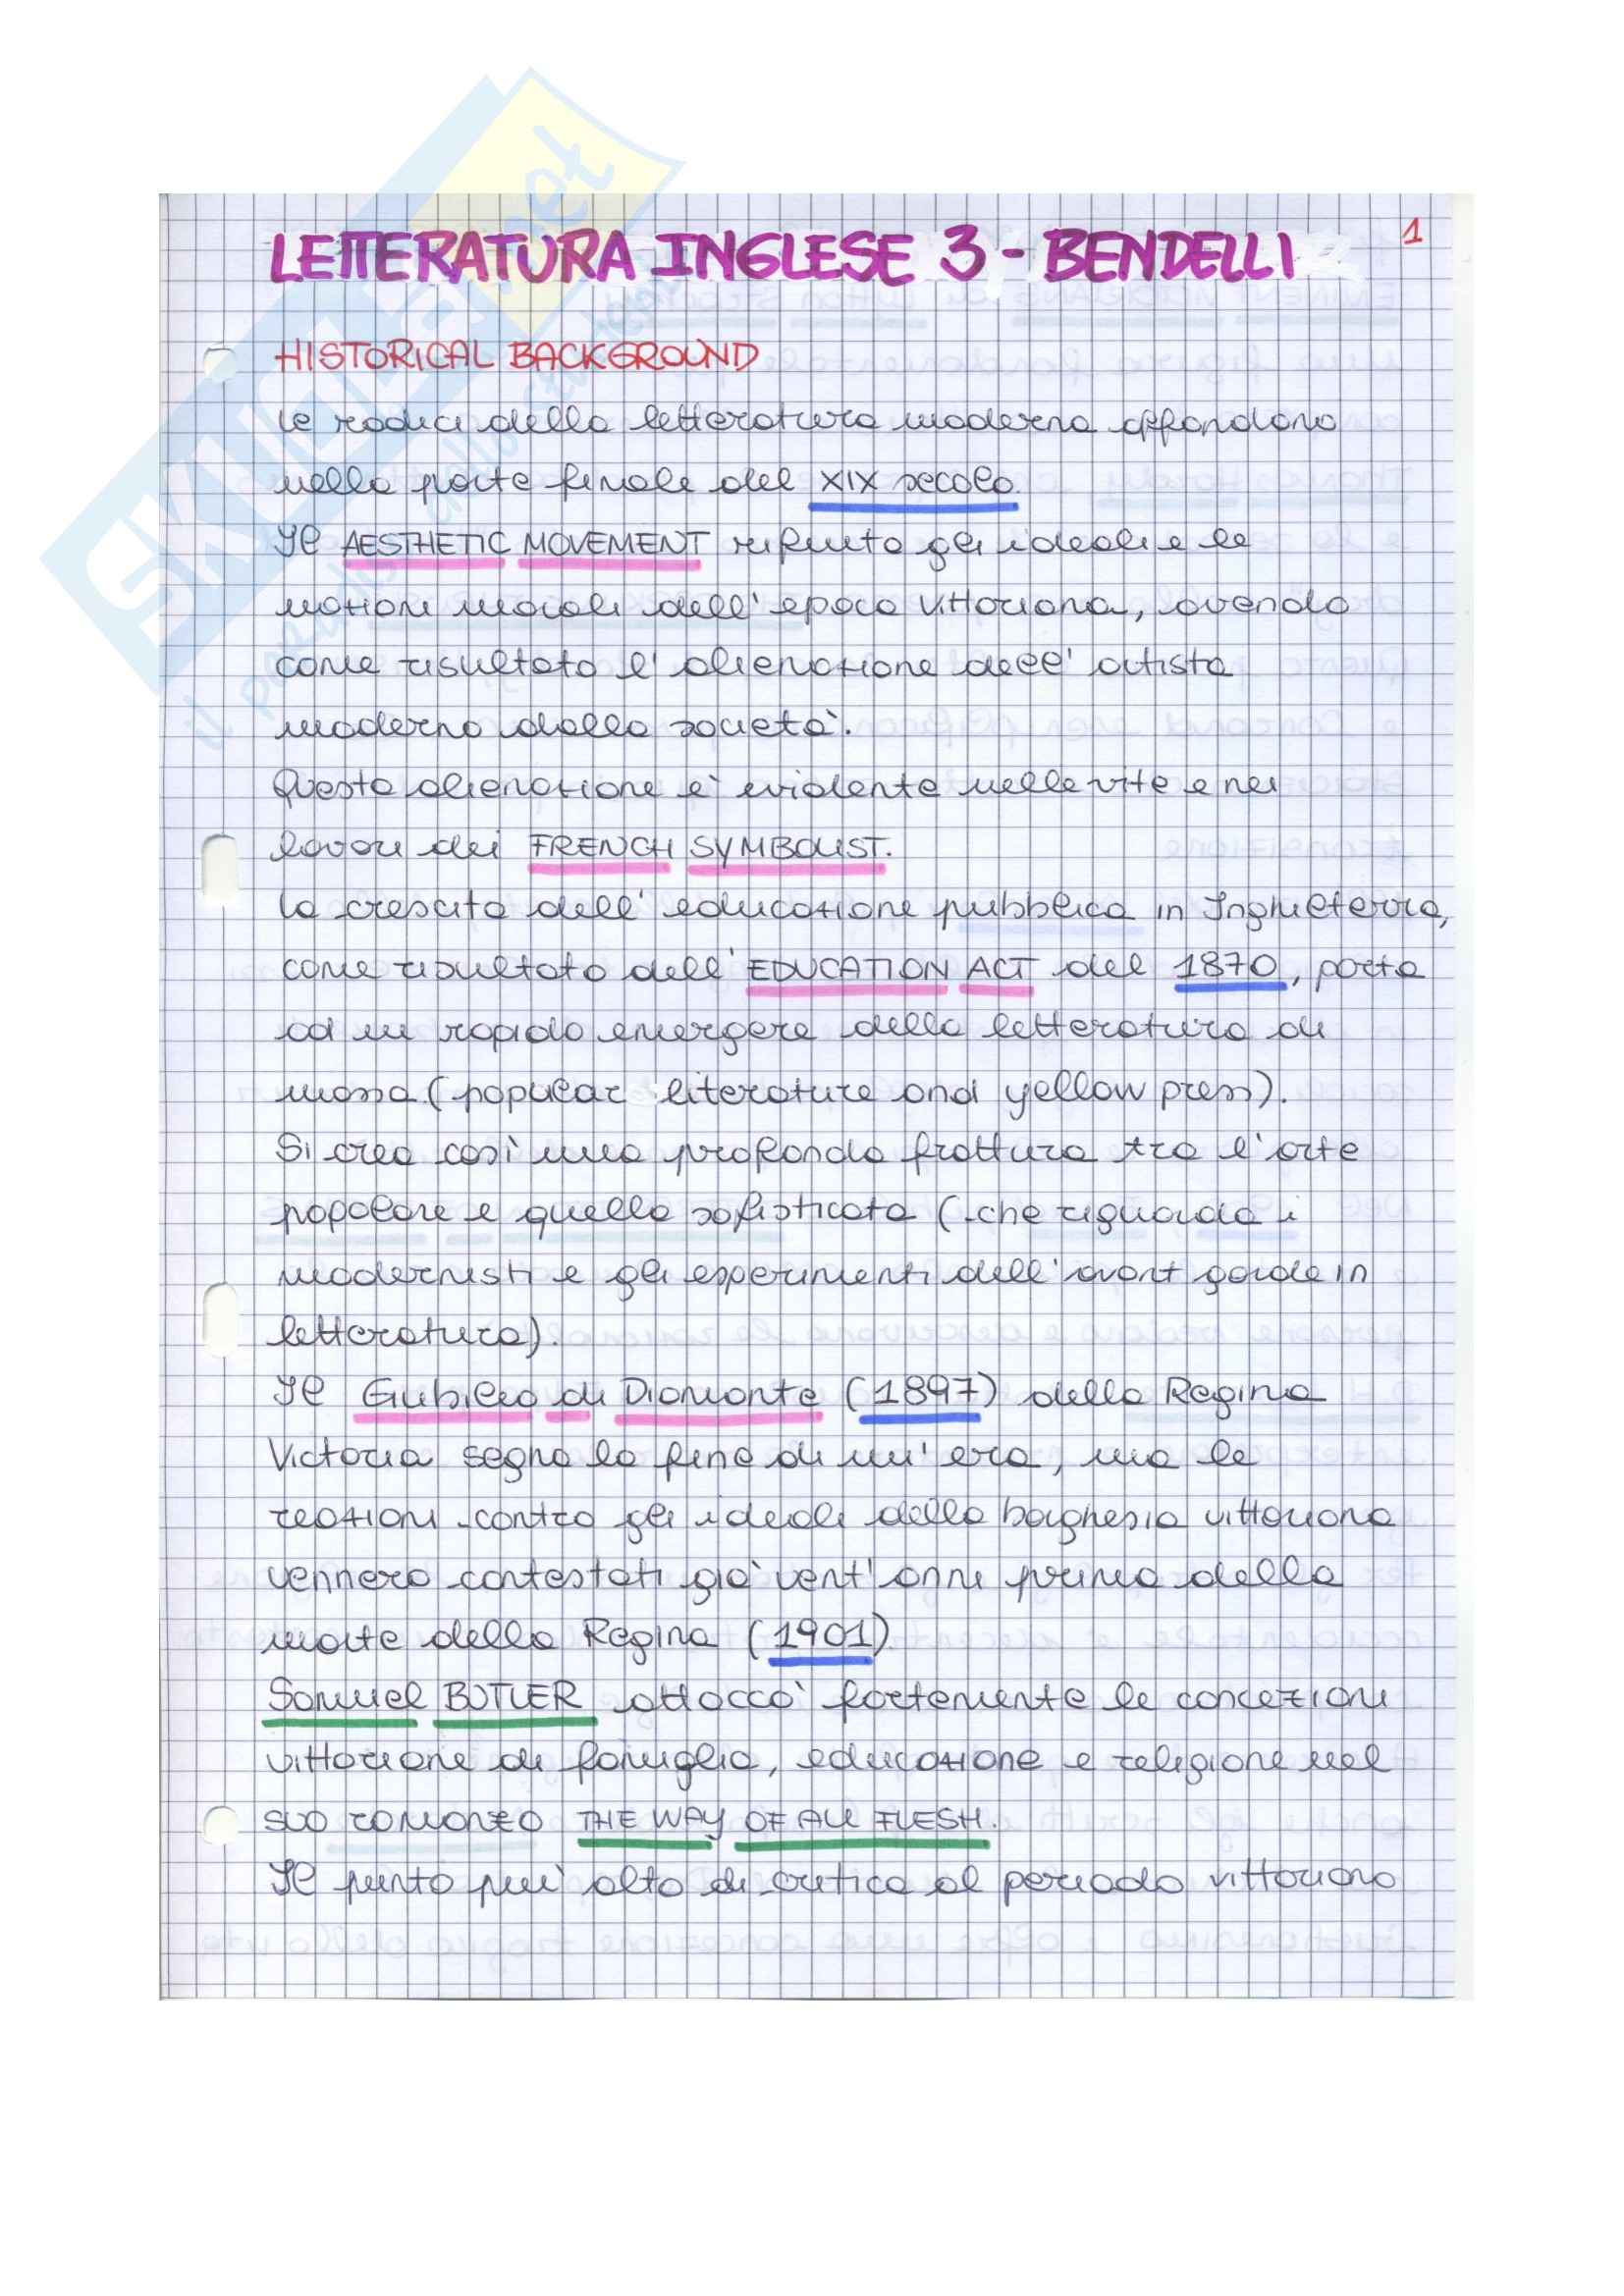 LETTERATURA INGLESE 3 - BENDELLI
1
HISTORICAL BACKGROUND
Le radici della letteratura moderna affondano
nella parte finale del XIX secolo.
Il AESTHETIC MOVEMENT rifiuta gli ideali e le
nozioni morali dell'epoca vittoriana, avendo
come risultato l'alienazione dell'artista
moderno dalla società.
Questa alienazione è evidente nelle vite e nei
lavori dei FRENCH SYMBOLIST.
La crescita dell'educazione pubblica in Inghilterra,
come risultato dell'EDUCATION ACT del 1870, porta
ad un rapido emergere della letteratura di
massa (popular literature and yellow press).
Si crea così una profonda frattura tra l'arte
popolare e quella sofisticata (che riguarda i
modernisti e gli esperimenti dell'avant garde in
letteratura).
Il Giubileo di Diamante (1897) della Regina
Victoria segna la fine di un'era, ma le
reazioni contro gli ideali della borghesia vittoriana
vennero contestati già vent'anni prima della
morte della Regina (1901)
Samuel BUTLER attaccò fortemente le concezioni
vittoriane di famiglia, educazione e religione nel
suo romanzo THE WAY OF ALL FLESH.
Il punto più alto di critica al periodo vittoriano
SKUOLA.net